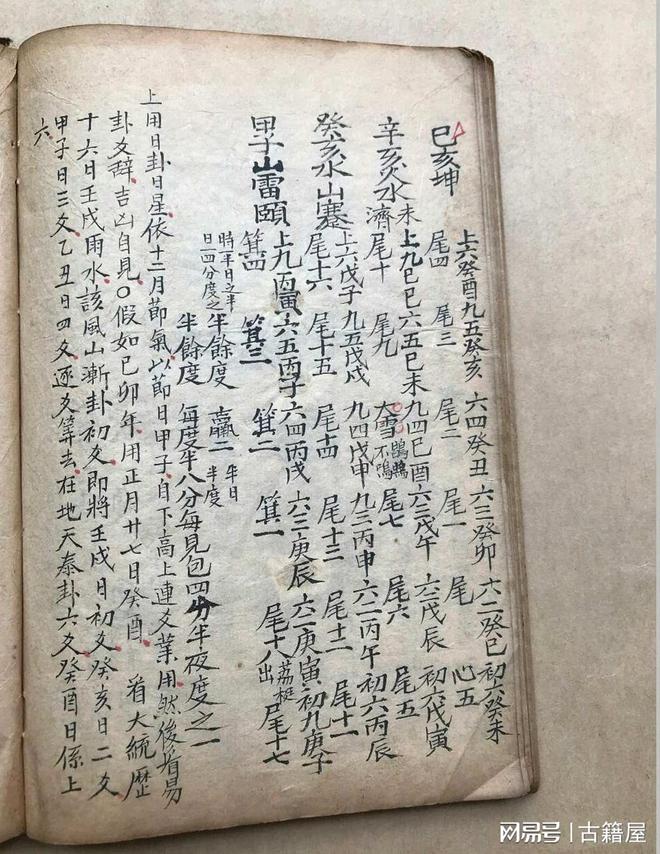 巳亥坤
上六癸酉九五癸亥 六四癸丑 六三癸卯 六二癸巳 初六癸未
尾四 尾三 尾二 尾一 尾 心五
辛亥火水未濟
上九巳巳 六五巳未 九四巳酉 六三戊午 六二戊辰 初六戊寅
尾十 尾九 大雪 鶡鴠不鳴 尾七 尾六 尾五
癸亥水山蹇
上六戊子 九五戊戌 九四戊申 九三丙申 六二丙午 初六丙辰
尾十六 尾十五 尾十四 尾十三 尾十二 尾十一
甲子山雷頤
上九丙寅 六五丙子 六四丙戌 六三庚辰 六二庚寅 初九庚子
箕四 箕三 箕二 箕一 尾十八 荔挺出 尾十七
時半日之半 半餘度 贏二 半日半度
日四分度之 半餘度 每度半八分每見包四分半夜度之一
上用日卦日星依十二月節氣以節日甲子自下高上連爻業用然後看易
卦爻辞吉凶自見〇假如巳卯年用正月廿七日癸酉 看大統歷
十六日壬戌雨水該風山漸卦初爻即將壬戌日初爻癸亥日二爻
甲子日三爻乙丑日四爻逐爻筭去在地天泰卦六爻癸酉日係上
六
网易号 | 古籍屋